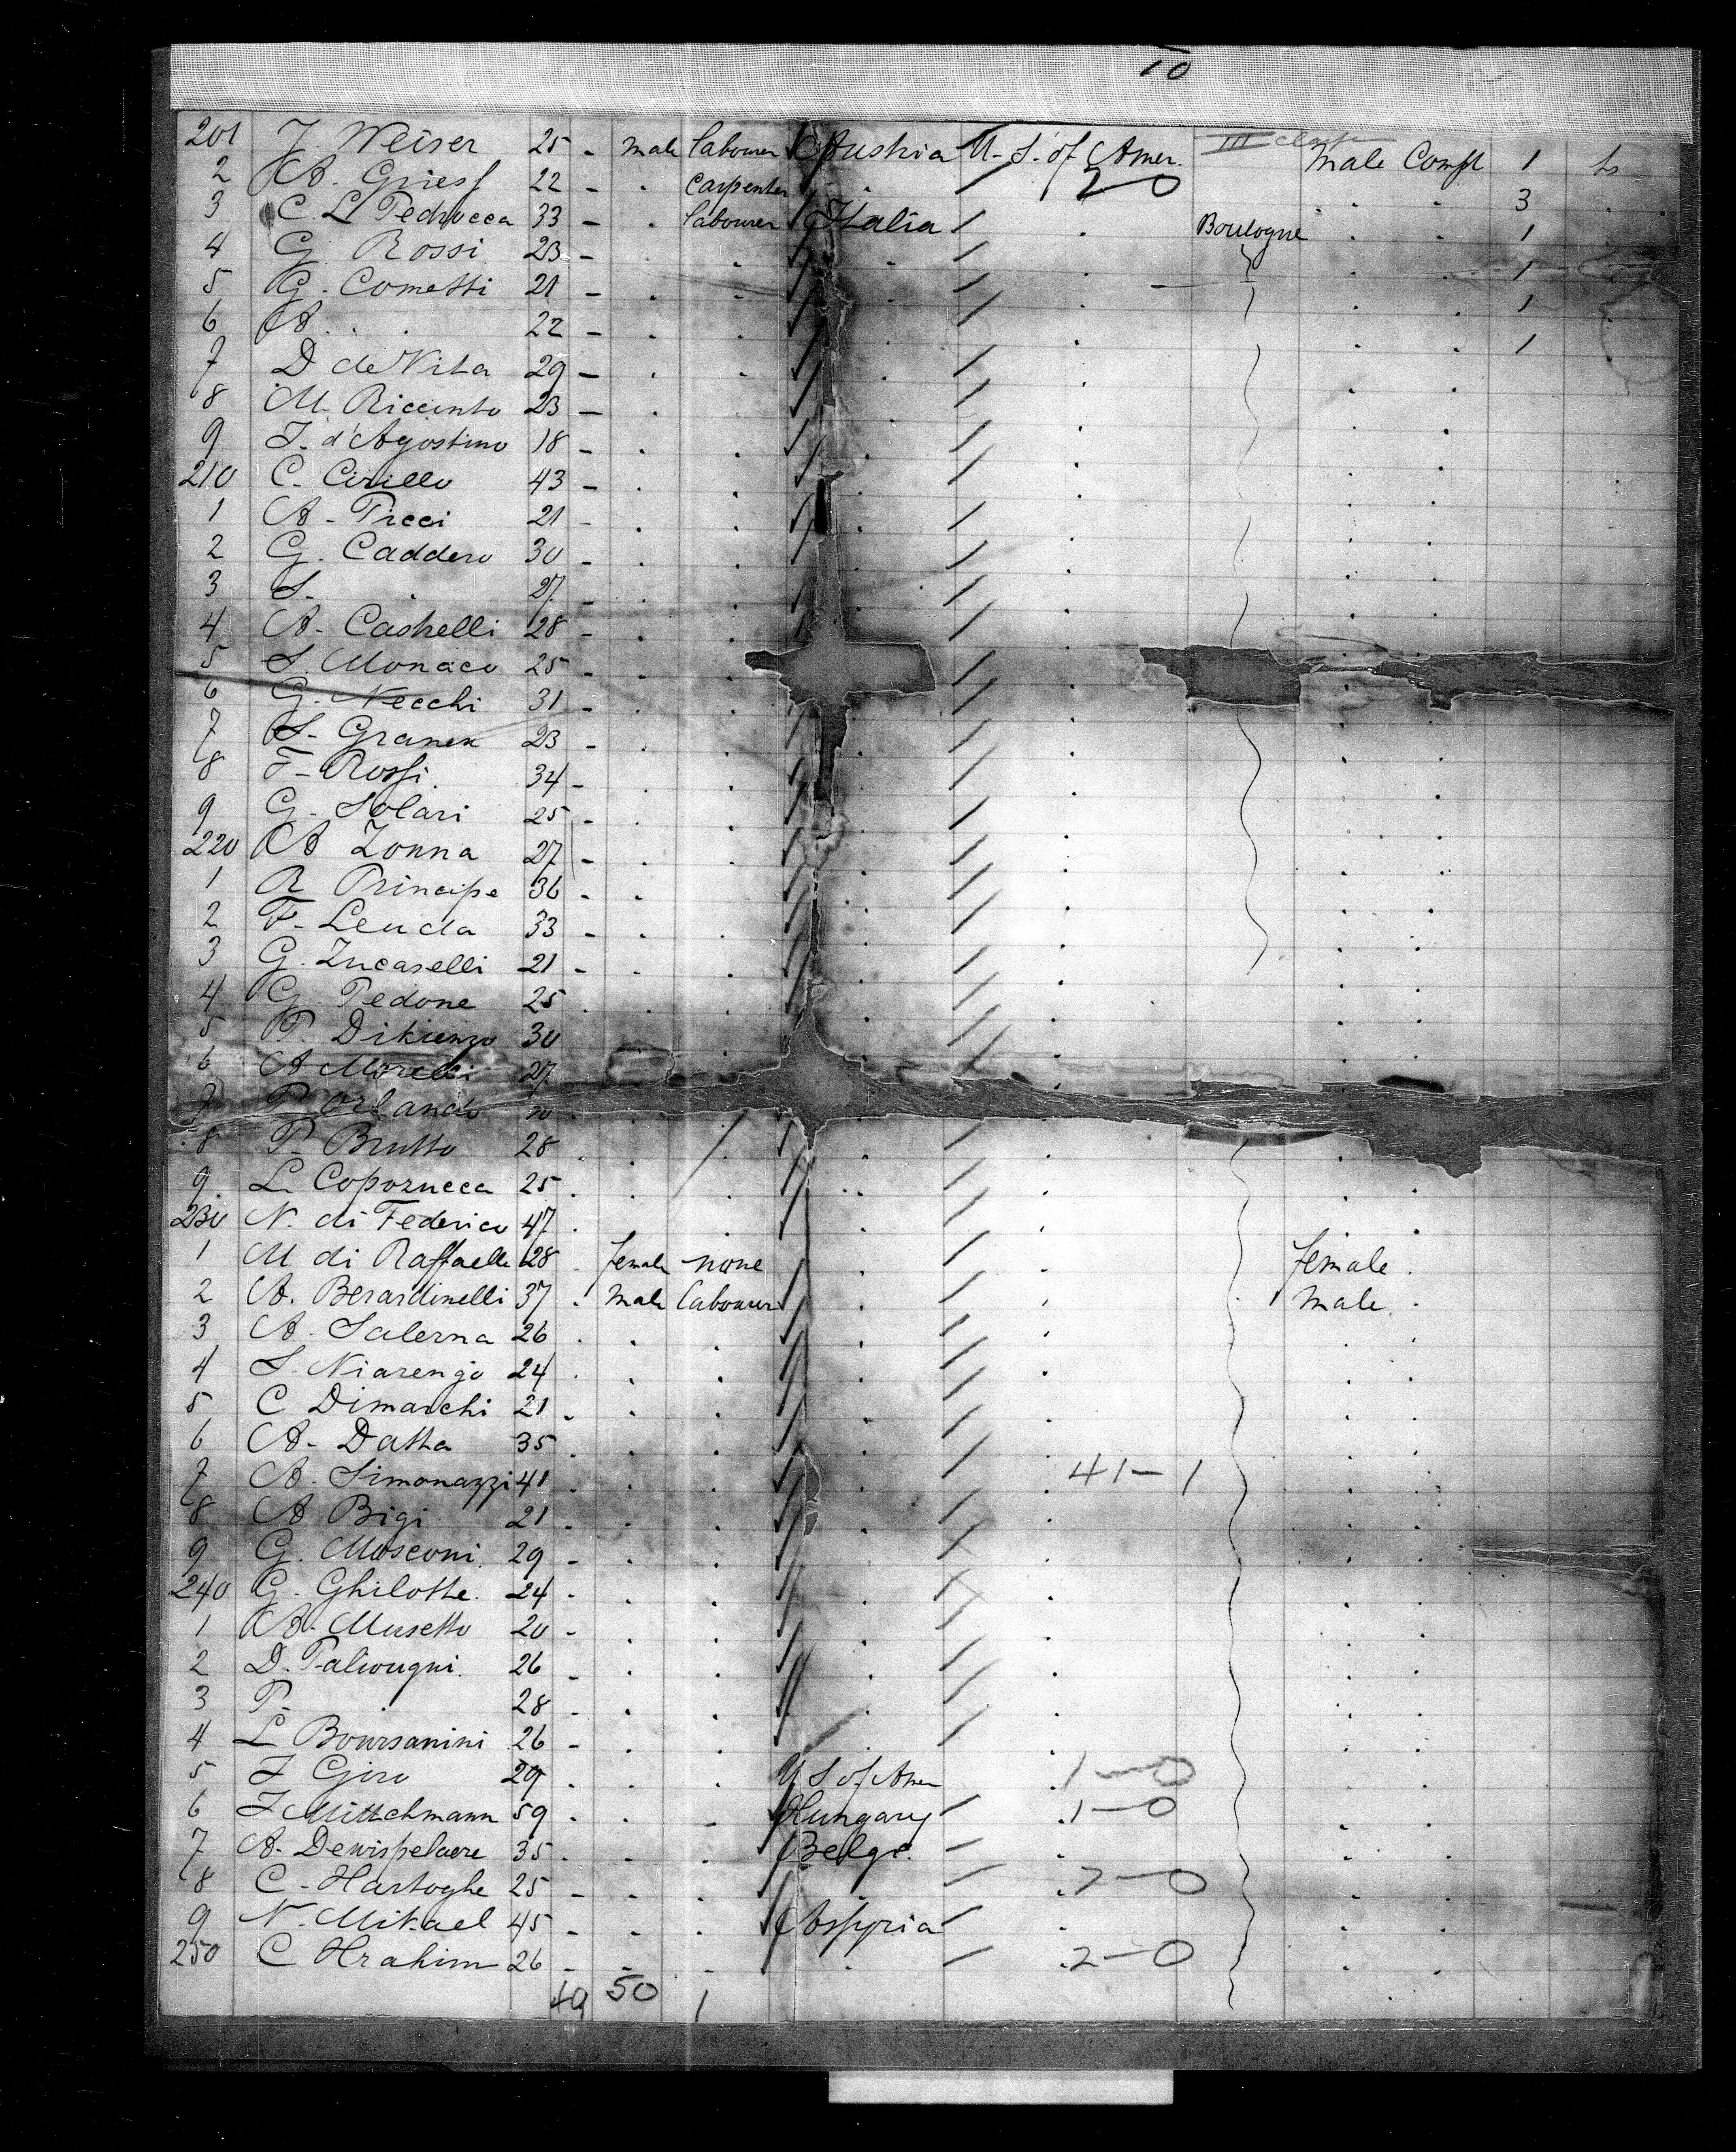 10
III class
201 J. Weiser 25 - male labourer Austria U. S. of Amer. male Compt 1 ls
2 A. Griess 22 - . carpenter . . 2-0 . . 3 .
3 C. L. Pedrucca 33 - . labourer Italia . Boulogne . . 1
4 G. Rossi 23 - . . . . . . 1
5 G. Cometti 21 - . . . . . . 1
6 A. . . 22 - . . . . . . 1
7 D de Vita 29 - . . . . . .
8 M. Riccinto 23 - . . . . . .
9 J. d'Agostino 18 - . . . . . .
210 C. Cirillo 43 - . . . . . .
1 A. Picci 21 - . . . . . .
2 G. Caddero 30 - . . . . . .
3 S. . 27 - . . . . . .
4 A. Castelli 28 - . . . . . .
5 S. Monaco 25 - . . . . . .
6 G. Necchi 31 - . . . . .
7 S. Granen 23 - . . . . . .
8 F. Rossi 34 - . . . . . .
9 G. Solari 25 - . . . . . .
220 A Zonna 27 - . . . . . .
1 R Principe 36 - . . . . . .
2 F. Leuda 33 - . . . . . .
3 G. Zucaselli 21 - . . . . . .
4 G. Pedone 25 . . . . . . .
5 P. Dikienzo 30
6 A Morelli 27
7 P Orlando 20 .
8 P. Brutto 28 . . . . . . .
9 L. Coporucca 25 . . . . . . .
230 N. di Federico 47 . . . . . . .
1 M di Raffaelle 28 . female none . . female .
2 A. Berardinelli 37 . male labourer . . male .
3 A. Salerna 26 . . . . . .
4 S. Niarengo 24 . . . . . . .
5 C Dimarchi 21 - . . . . . .
6 A. Datta 35 . . . . . . .
7 A. Simonazzi 41 . . . . 41-1 . .
8 A Bigi 21 . . . . . . .
9 G. Mosconi 29 - . . . . . .
240 G. Ghilotte 24 - . . . . . .
1 A. Musetto 20 - . . . . . .
2 D. Paliougni 26 - . . . . . .
3 P. . 28 - . . . . . .
4 L Boursanini 26 - . . . . .
5 J Giro 29 . . . U S of Amer 1-0 . .
6 J Mittchmann 59 . . - Hungary 1-0 . .
7 A. Dewispelaere 35 . . . Belge. . . .
8 C. Hartoghe 25 - . . . 2-0 . .
9 N. Mikael 45 - . . Assyria . . .
250 C Hrahim 26 - - - . 2-0 . .
49 50 1